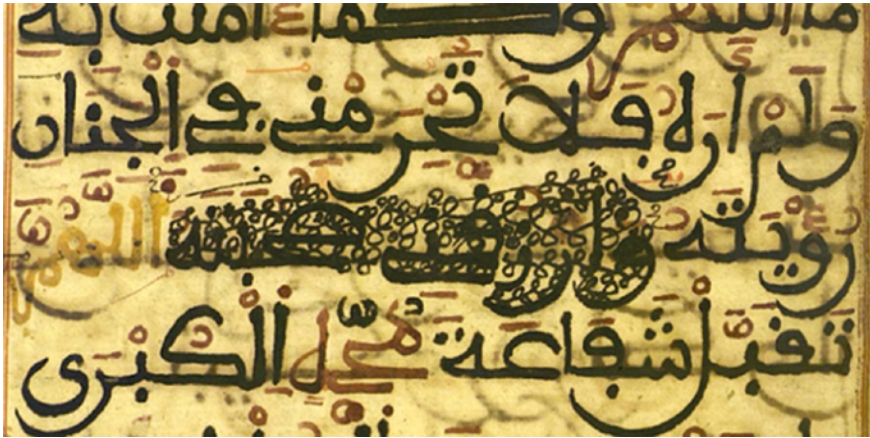 اللهم وكما امنت به
ولم اره فلا تحرمني في الجنان
رويته وارزقني صحبته اللهم
تقبل شفاعة محمد الكبرى